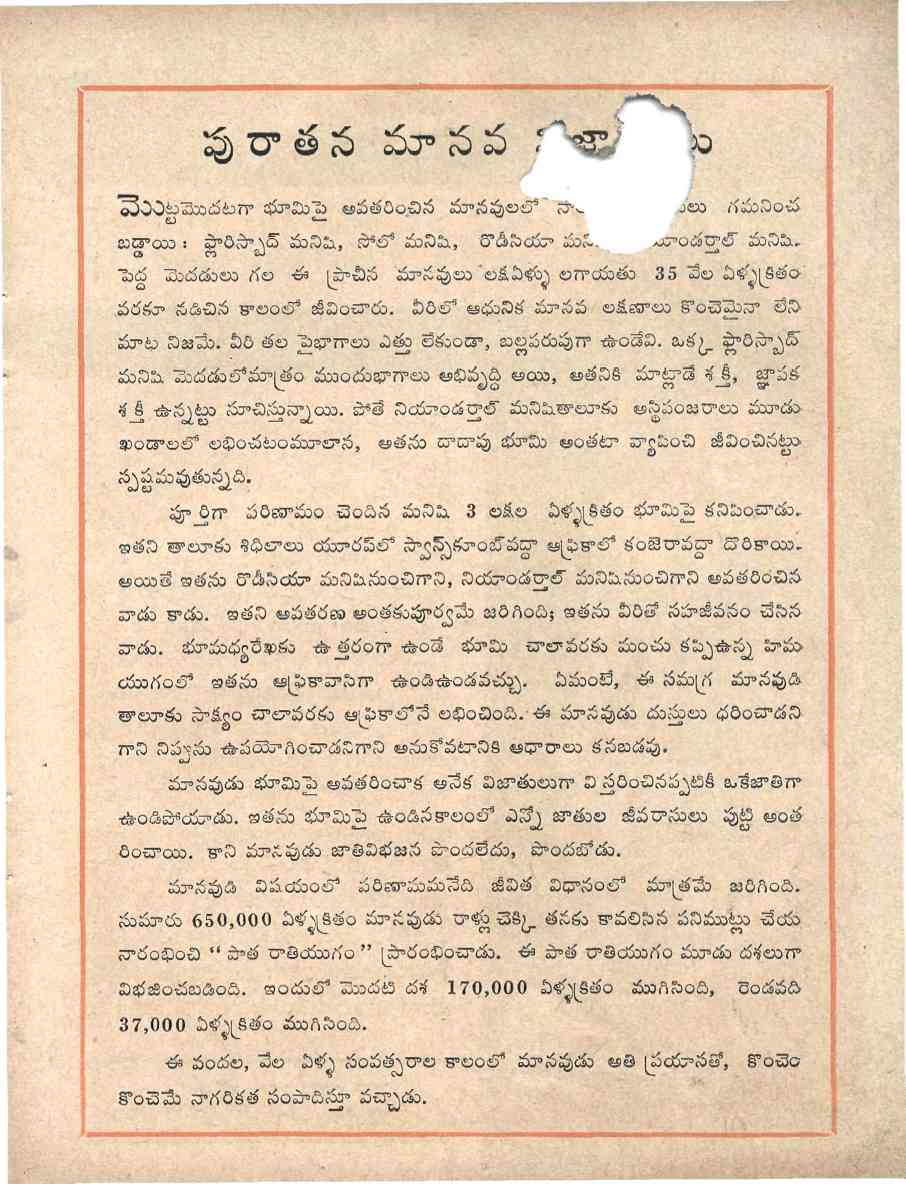 పురాతన మానవ
మొట్టమొదటగా భూమిపై అవతరించిన మానవులలో గమనించ
బడ్డాయి : ఫ్లారిస్బాద్ మనిషి, సోలో మనిషి, రొడీసియా మనిషి.
పెద్ద మెదడులు గల ఈ ప్రాచీన మానవులు లక్షఏళ్ళు లగాయతు 35 వేల ఏళ్ళక్రితం
వరకూ నడిచిన కాలంలో జీవించారు. వీరిలో ఆధునిక మానవ లక్షణాలు కొంచెమైనా లేని
మాట నిజమే. వీరి తల పైభాగాలు ఎత్తు లేకుండా, బల్లపరుపుగా ఉండేవి. ఒక్క ఫ్లారిస్బాద్
మనిషి మెదడులోమాత్రం ముందుభాగాలు అభివృద్ధి అయి, అతనికి మాట్లాడే శక్తీ, జ్ఞాపక
శక్తీ ఉన్నట్టు సూచిస్తున్నాయి. పోతే నియాండర్తాల్ మనిషితాలూకు అస్థిపంజరాలు మూడు
ఖండాలలో లభించటంమూలాన, అతను దాదాపు భూమి అంతటా వ్యాపించి జీవించినట్టు
స్పష్టమవుతున్నది.
పూర్తిగా పరిణామం చెందిన మనిషి 3 లక్షల ఏళ్ళక్రితం భూమిపై కనిపించాడు.
ఇతని తాలూకు శిథిలాలు యూరప్‌లో స్వాన్స్‌కూంబ్‌వద్దా ఆఫ్రికాలో కంజెరావద్దా దొరికాయి.
అయితే ఇతను రొడీసియా మనిషినుంచిగాని, నియాండర్తాల్ మనిషినుంచిగాని అవతరించిన
వాడు కాడు. ఇతని అవతరణ అంతకుపూర్వమే జరిగింది; ఇతను వీరితో సహజీవనం చేసిన
వాడు. భూమధ్యరేఖకు ఉత్తరంగా ఉండే భూమి చాలావరకు మంచు కప్పిఉన్న హిమ
యుగంలో ఇతను ఆఫ్రికావాసిగా ఉండిఉండవచ్చు. ఏమంటే, ఈ సమగ్ర మానవుడి
తాలూకు సాక్ష్యం చాలావరకు ఆఫ్రికాలోనే లభించింది. ఈ మానవుడు దుస్తులు ధరించాడని
గాని నిప్పును ఉపయోగించాడనిగాని అనుకోవటానికి ఆధారాలు కనబడవు.
మానవుడు భూమిపై అవతరించాక అనేక విజాతులుగా విస్తరించినప్పటికీ ఒకేజాతిగా
ఉండిపోయాడు. ఇతను భూమిపై ఉండినకాలంలో ఎన్నో జాతుల జీవరాసులు పుట్టి అంత
రించాయి. కాని మానవుడు జాతివిభజన పొందలేదు, పొందబోడు.
మానవుడి విషయంలో పరిణామమనేది జీవిత విధానంలో మాత్రమే జరిగింది.
సుమారు 650,000 ఏళ్ళక్రితం మానవుడు రాళ్లు చెక్కి తనకు కావలిసిన పనిముట్లు చేయ
నారంభించి “ పాత రాతియుగం ” ప్రారంభించాడు. ఈ పాత రాతియుగం మూడు దశలుగా
విభజించబడింది. ఇందులో మొదటి దశ 170,000 ఏళ్ళక్రితం ముగిసింది, రెండవది
37,000 ఏళ్ళక్రితం ముగిసింది.
ఈ వందల, వేల ఏళ్ళ సంవత్సరాల కాలంలో మానవుడు అతి ప్రయాసతో, కొంచెం
కొంచెమే నాగరికత సంపాదిస్తూ వచ్చాడు.